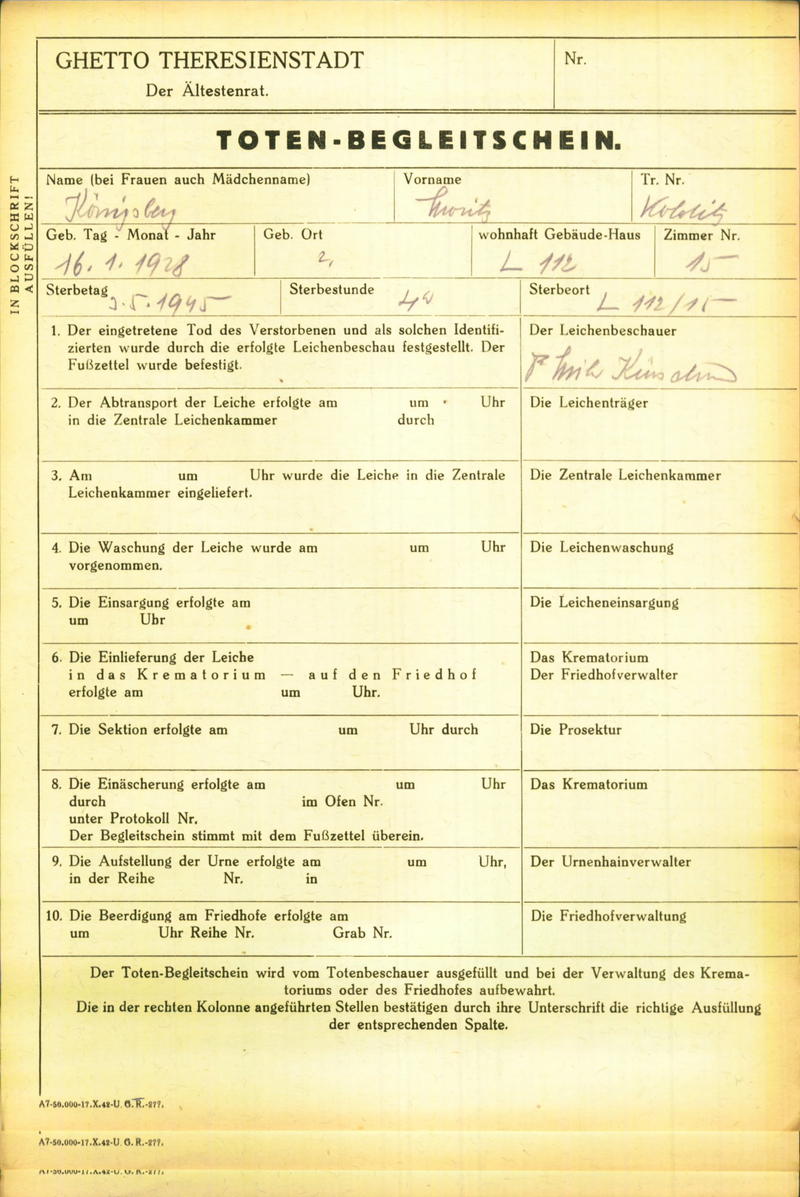 GHETTO THERESIENSTADT
Der Ältestenrat.
Nr.
TOTEN-BEGLEITSCHEIN.
IN BLOCKSCHRIFT
AUSFÜLLEN!
Name (bei Frauen auch Mädchenname)
Königsberg
Vorname
Moritz
Tr. Nr.
Geb. Tag - Monat - Jahr
16. 1. 1928
Geb. Ort
wohnhaft Gebäude-Haus
L 112
Zimmer Nr.
15
Sterbetag
3.5.1945
Sterbestunde
Sterbeort
L 112/15
1. Der eingetretene Tod des Verstorbenen und als solchen Identifi-
zierten wurde durch die erfolgte Leichenbeschau festgestellt. Der
Fußzettel wurde befestigt.
Der Leichenbeschauer
2. Der Abtransport der Leiche erfolgte am um Uhr
in die Zentrale Leichenkammer durch
Die Leichenträger
3. Am um Uhr wurde die Leiche in die Zentrale
Leichenkammer eingeliefert.
Die Zentrale Leichenkammer
4. Die Waschung der Leiche wurde am um Uhr
vorgenommen.
Die Leichenwaschung
5. Die Einsargung erfolgte am
um Uhr
Die Leicheneinsargung
6. Die Einlieferung der Leiche
in das Krematorium — auf den Friedhof
erfolgte am um Uhr.
Das Krematorium
Der Friedhofverwalter
7. Die Sektion erfolgte am um Uhr durch
Die Prosektur
8. Die Einäscherung erfolgte am um Uhr
durch im Ofen Nr.
unter Protokoll Nr.
Der Begleitschein stimmt mit dem Fußzettel überein.
Das Krematorium
9. Die Aufstellung der Urne erfolgte am um Uhr,
in der Reihe Nr. in
Der Urnenhainverwalter
10. Die Beerdigung am Friedhofe erfolgte am
um Uhr Reihe Nr. Grab Nr.
Die Friedhofverwaltung
Der Toten-Begleitschein wird vom Totenbeschauer ausgefüllt und bei der Verwaltung des Krema-
toriums oder des Friedhofes aufbewahrt.
Die in der rechten Kolonne angeführten Stellen bestätigen durch ihre Unterschrift die richtige Ausfüllung
der entsprechenden Spalte.
A7-50.000-17.X.42-U. G. R.-277.
A7-50.000-17.X.42-U. G. R.-277.